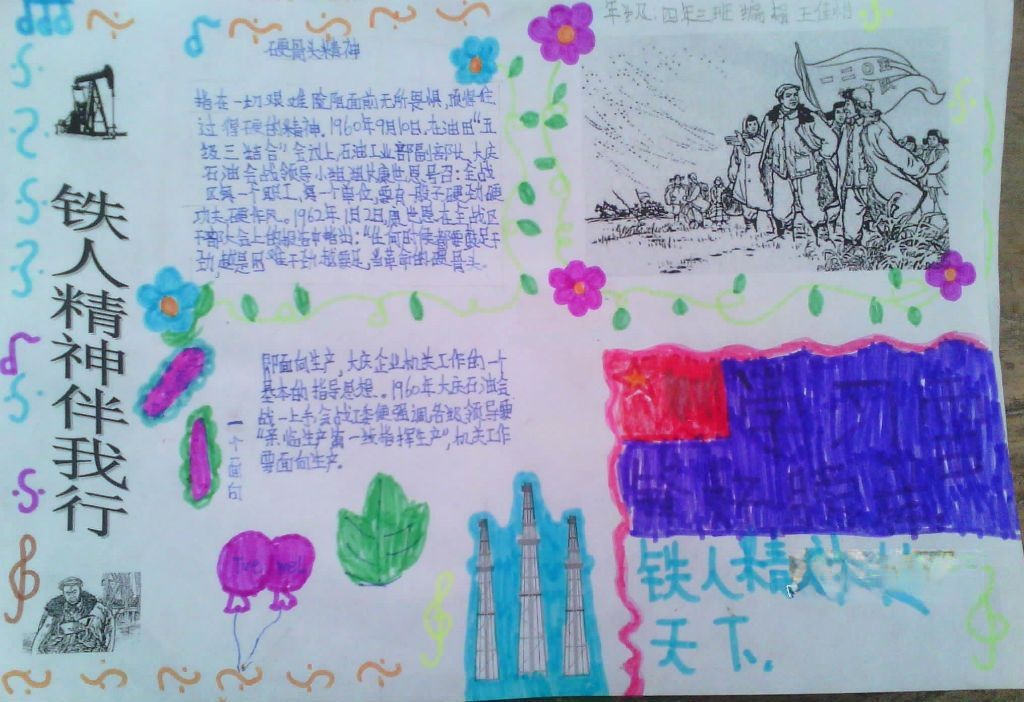 年级:四年三班 编辑 王佳怡
硬骨头精神
指在一切艰难险阻面前无所畏惧,顶得住
过得硬的精神。1960年9月10日,在油田“五
级三结合”会议上,石油工业部副部长、大庆
石油会战领导小组组长康世恩号召:全战
区每一个职工,每一个单位,要有一股子硬劲,硬
功夫,硬作风。1962年1月2日,康世恩在全战区
干部大会上的报告中指出:“任何时候都要鼓足干
劲,越是困难干劲越要足,当革命的硬骨头。
铁人精神伴我行
一个面向
即面向生产,大庆企业机关工作的一个
基本的指导思想。1960年大庆石油会
战一上手,会战工委便强调,各级领导要
“亲临生产第一线指挥生产”,机关工作
要面向生产。
铁人精神
天下.